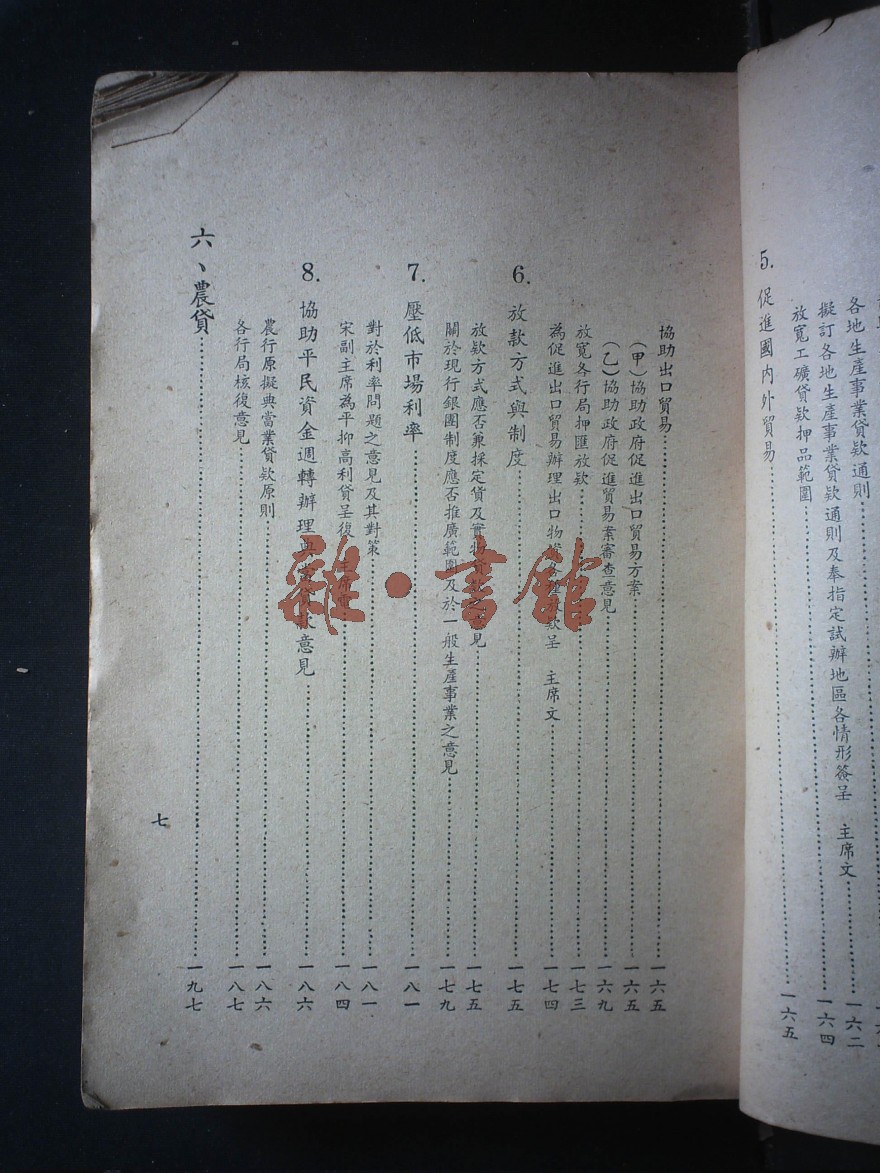 各地生產事業貸款通則……一六二
擬訂各地生產事業貸款通則及奉指定試辦地區各情形簽呈　主席文……一六四
放寬工礦貸款押品範圍……一六四
5. 促進國內外貿易……一六五
協助出口貿易……一六五
(甲)協助政府促進出口貿易方案……一六五
(乙)協助政府促進貿易案審查意見……一六九
放寬各行局押匯放款……一七三
為促進出口貿易辦理出口物款呈　主席文……一七四
6. 放款方式與制度……一七五
放款方式應否兼採定貸及實物見……一七五
關於現行銀團制度應否推廣範圍及於一般生產事業之意見……一七九
7. 壓低市場利率……一八一
對於利率問題之意見及其對策……一八一
宋副主席為平抑高利貸呈復　主席……一八四
8. 協助平民資金週轉辦理典意見……一八六
農行原擬典當業貸款原則……一八六
各行局核復意見……一八七
六、農貸……一九七
七
雜·書館